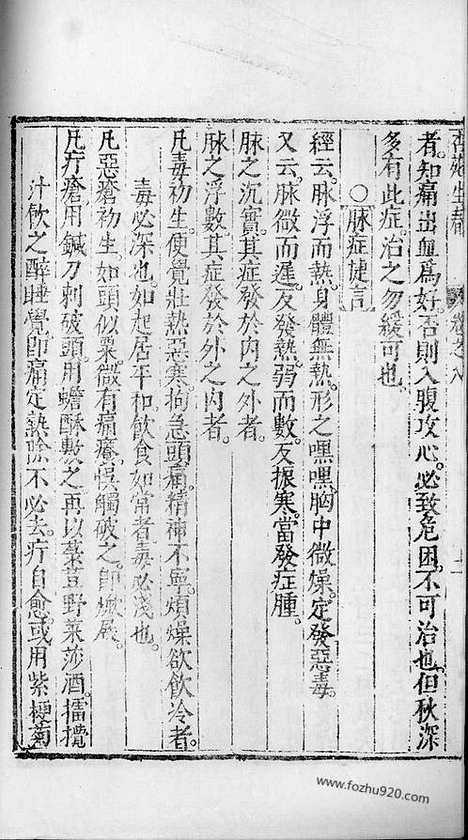 者。知痛出血爲好。否則入腹攻心。必致危困。不可治也。但秋深
多有此症。治之勿緩可也。
○脉症捷言
經云。脉浮而熱。身體無熱。形之嘿嘿。胸中微燥。定發惡毒。
又云。脉微而遲。反發熱。弱而數。反振寒。當發症腫。
脉之沉實。其症發於內之外者。
脉之浮數。其症發於外之內者。
凡毒初生。便覺壯熱惡寒。拘急頭痛。精神不寧。煩燥欲飲冷者。
毒必深也。如起居平和。飲食如常者。毒必淺也。
凡惡瘡初生。如頭似粟。微有痛癢。誤觸破之。即
凡疔瘡用鍼刀刺破頭。用蟾酥敷之。再以蒼耳野菜莎酒擂攪
汁飲之。醉睡覺即痛定熱除。不必去。疔自愈。或用紫梗菊
卷之八
www.fozhu920.com